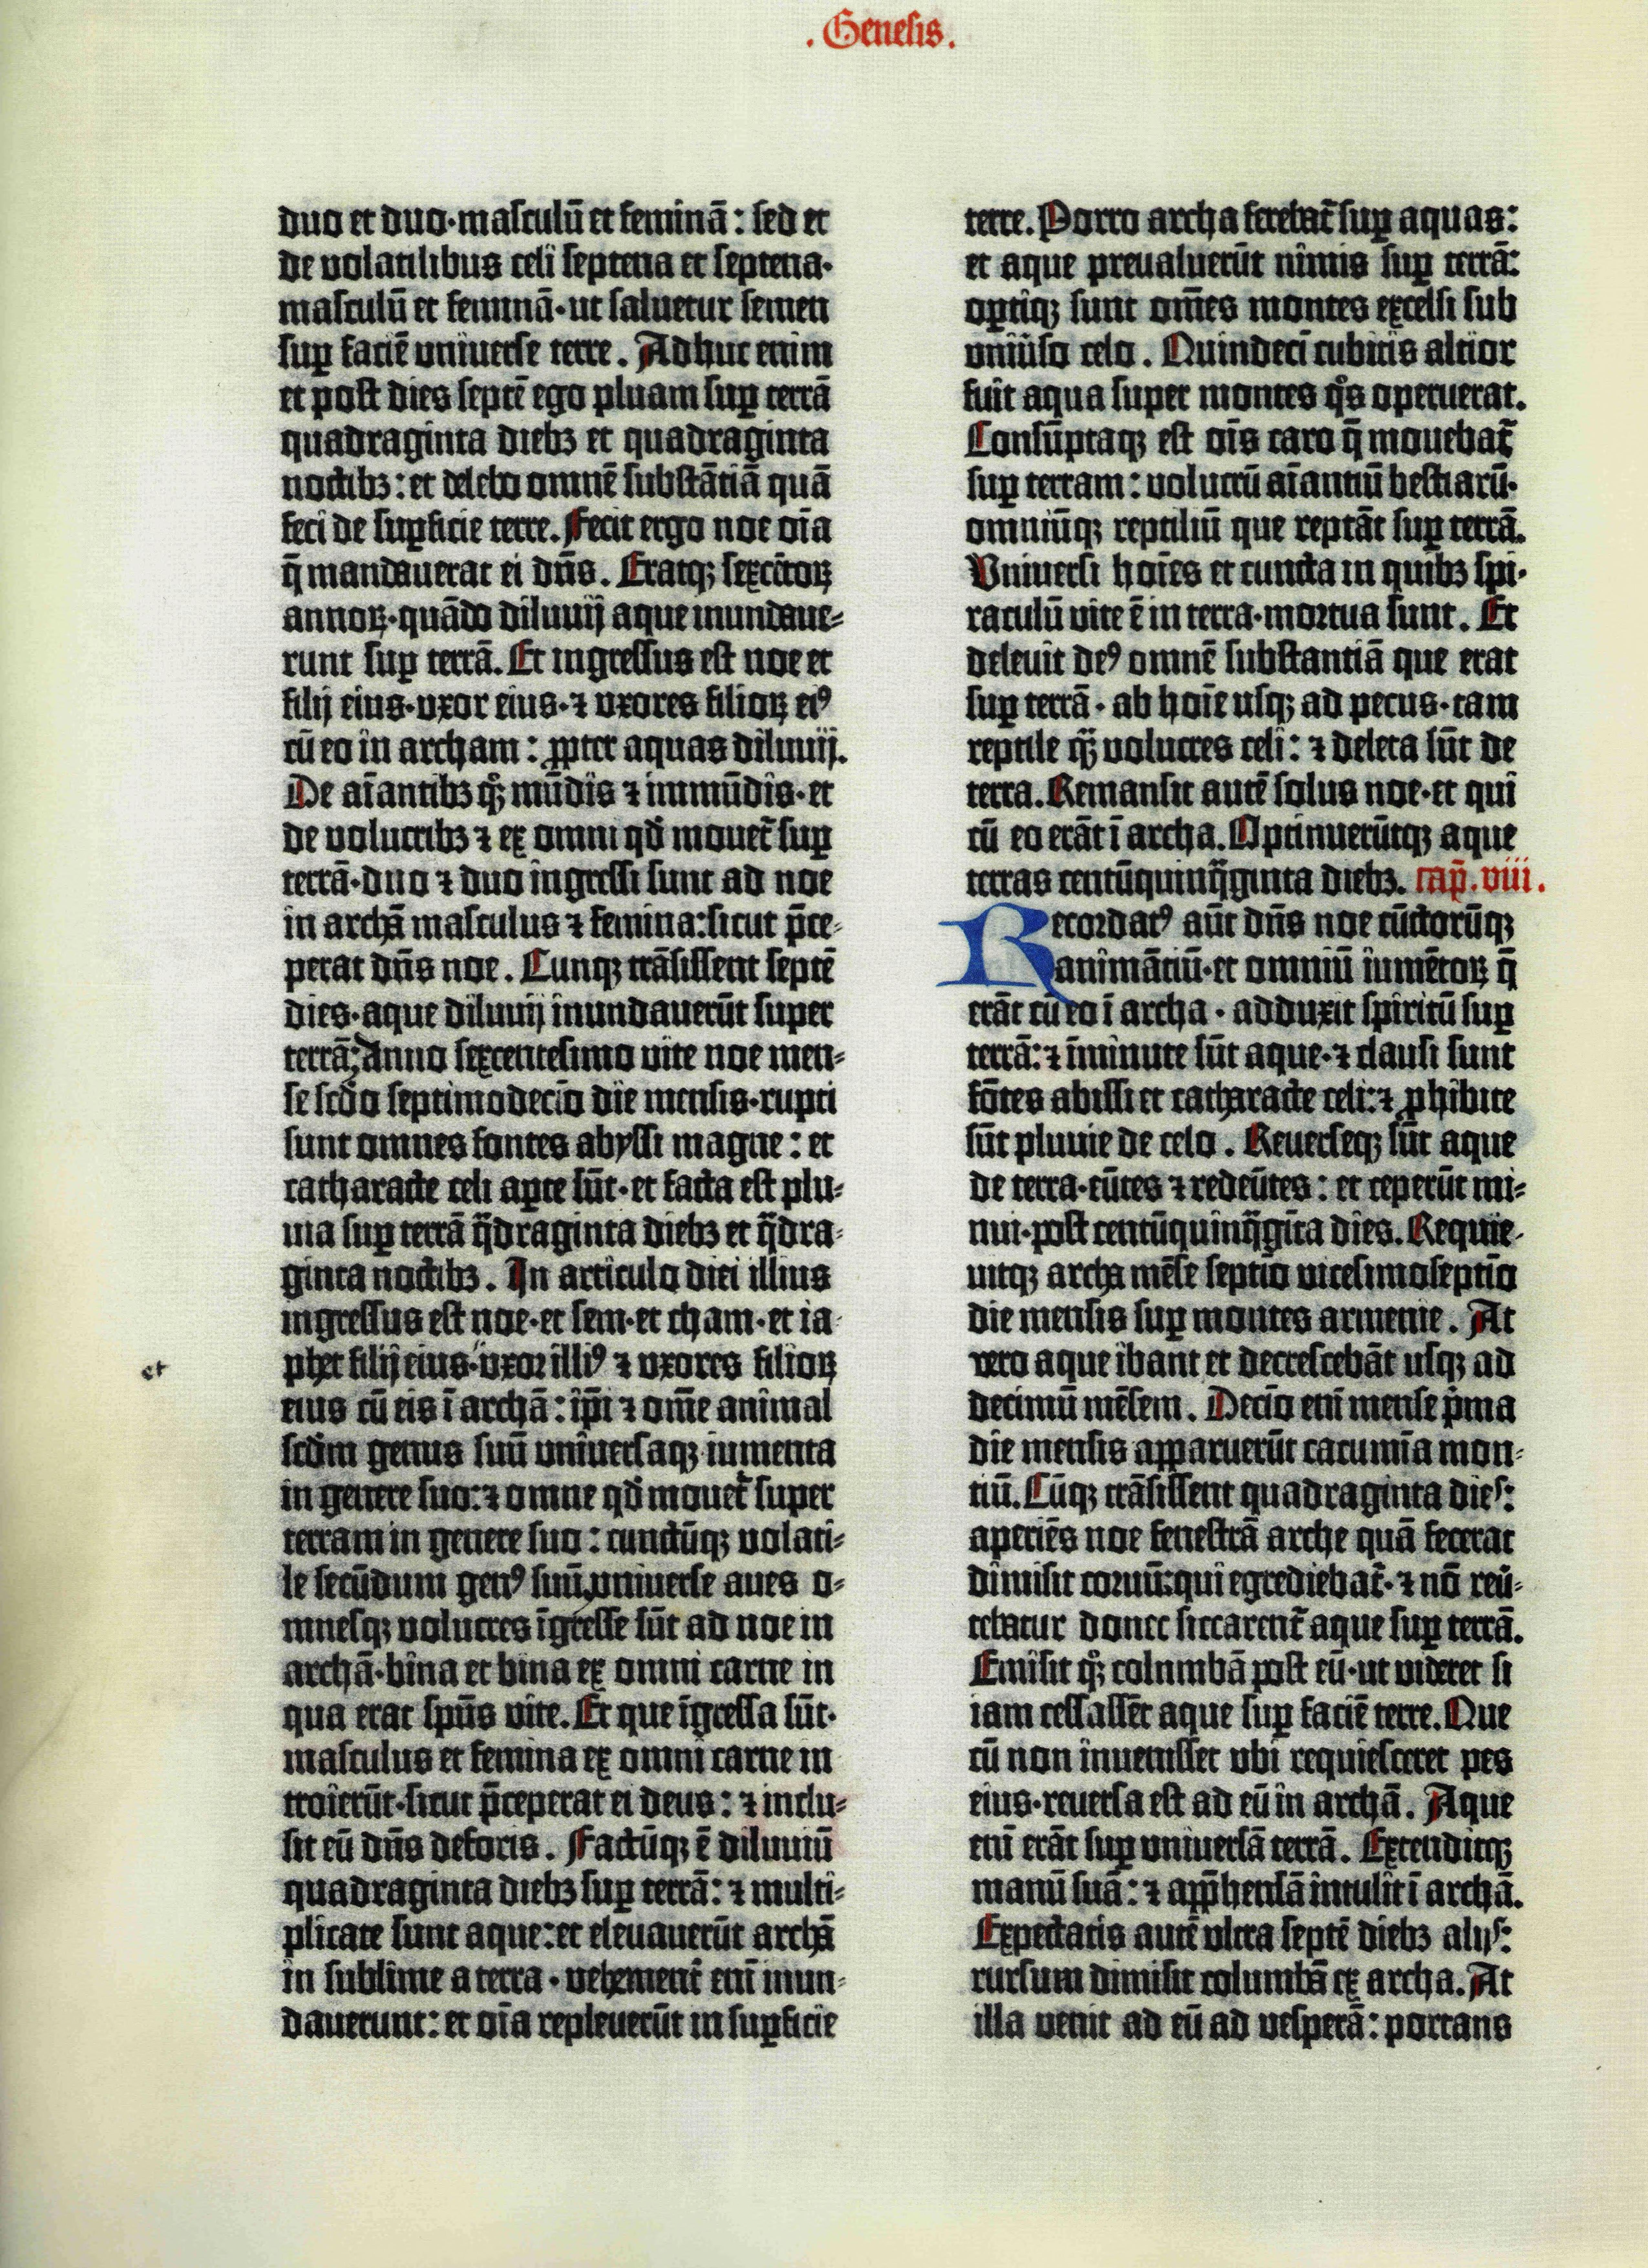 . Genesis .
duo et duo·masculū et feminā : sed et
de volatilibus celi septena et septena·
masculū et feminā·ut saluetur semen
suꝑ faciē universe terre . Adhuc enim
et post dies septē ego pluam suꝑ terrā
quadraginta diebꝫ et quadraginta
noctibꝫ : et delebo omnē substātiā quā
feci de suꝑficie terre. Fecit ergo noe oīa
q̄ mandauerat ei dn̄s . Eratqꝫ sexcētoꝝ
annoꝝ·quādo diluuij aque inundaue-
runt suꝑ terrā. Et ingressus est noe et
filij eius·uxor eius·⁊ uxores filioꝝ eiꝰ
cū eo in archam : ꝓpter aquas diluuij.
De aīantibꝫ qͦꝫ mūdis ⁊ immūdis·et
de volucribꝫ ⁊ ex omni qd̄ mouet᷑ suꝑ
terrā·duo ⁊ duo ingressi sunt ad noe
in archā masculus ⁊ femina:sicut p̄ce-
perat dn̄s noe . Cunqꝫ trāsissent septē
dies·aque diluuij inundauerūt super
terrā: Anno sexcentesimo vite noe men-
se scd̄o septimodecīo die mensis·rupti
sunt omnes fontes abyssi magne : et
catharacte celi aꝑte sūt·et facta est plu-
uia suꝑ terrā q̄draginta diebꝫ et q̄dra-
ginta noctibꝫ . In articulo diei illius
ingressus est noe·et sem·et cham·et ia-
phet filij eius·uxor illiꝰ ⁊ uxores filioꝝ
et
eius cū eis ī archā : ip̄i ⁊ om̄e animal
scd̄m genus suū universaqꝫ iumenta
in genere suo:⁊ omne qd̄ mouet᷑ super
terram in genere suo : cunctūqꝫ volati-
le secūdum genꝰ suū,vniuerse aues o-
mnesqꝫ volucres īgresse sūt ad noe in
archā·bina et bina ex omni carne in
qua erat spūs vite. Et que īgressa sūt·
masculus et femina ex omni carne in
troierūt·sicut p̄ceperat ei deus : ⁊ inclu-
sit eū dn̄s deforis . Factūqꝫ ē diluuiū
quadraginta diebꝫ suꝑ terrā : ⁊ multi-
plicate sunt aque:et eleuauerūt archā
in sublime a terra · vehement᷑ enī inun-
dauerunt : et oīa repleuerūt in suꝑficie
terre. Porro archa ferebat᷑ suꝑ aquas :
et aque preualuerūt nimis suꝑ terrā:
oꝑtiqꝫ sunt om̄es montes excelsi sub
uniūso celo . Quindecī cubitis altior
fuit aqua super montes qͦs operuerat.
Consūptaqꝫ est oīs caro q̄ mouebat᷑
suꝑ terram : volucrū aīantiū bestiarū·
omniūqꝫ reptiliū que reptāt suꝑ terrā.
Vniuersi hoīes et cuncta in quibꝫ spi-
raculū vite ē in terra·mortua sunt . Et
deleuit deꝰ omnē substantiā que erat
suꝑ terrā · ab hoīe usqꝫ ad pecus·tam
reptile qᷓꝫ volucres celi : ⁊ deleta sūt de
terra. Remansit autē solus noe·et qui
cū eo erāt ī archa. Optinuerūtqꝫ aque
terras centūquinq̄ginta diebꝫ. cap̄.viii.
Recordatꝰ aūt dn̄s noe cūctorūqꝫ
animātiū·et omniū iumētoꝝ q̄
erāt cū eo ī archa · adduxit spiritū suꝑ
terrā:⁊ īminute sūt aque·⁊ clausi sunt
fōtes abissi et catharacte celi:⁊ ꝓhibite
sūt pluuie de celo . Reuerseqꝫ sūt aque
de terra·eūtes ⁊ redeūtes : et ceperūt mi-
nui·post centūquinq̄gīta dies. Requie-
uitqꝫ archa mēse septīo vicesimoseptīo
die mensis suꝑ montes armenie . At
vero aque ibant et decrescebāt usqꝫ ad
decimū mēsem . Decīo enī mense p̄ma
die mensis apparuerūt cacumīa mon-
tiū. Cūqꝫ trāsissent quadraginta dies:
aperiēs noe fenestrā arche quā fecerat
dimisit coruū:qui egrediebat᷑·⁊ nō reū-
tebatur donec siccarent᷑ aque suꝑ terrā.
Emisit qͦꝫ columbā post eū·ut videret si
iam cessassēt aque suꝑ faciē terre. Que
cū non inuenisset ubi requiesceret pes
eius·reuersa est ad eū in archā . Aque
enī erāt suꝑ vniuersā terrā . Extenditqꝫ
manū suā : ⁊ app̄hensā intulit ī archā.
Expectatis autē vltra septē diebꝫ alijs:
rursum dimisit columbā ex archa. At
illa venit ad eū ad vesperā : portans